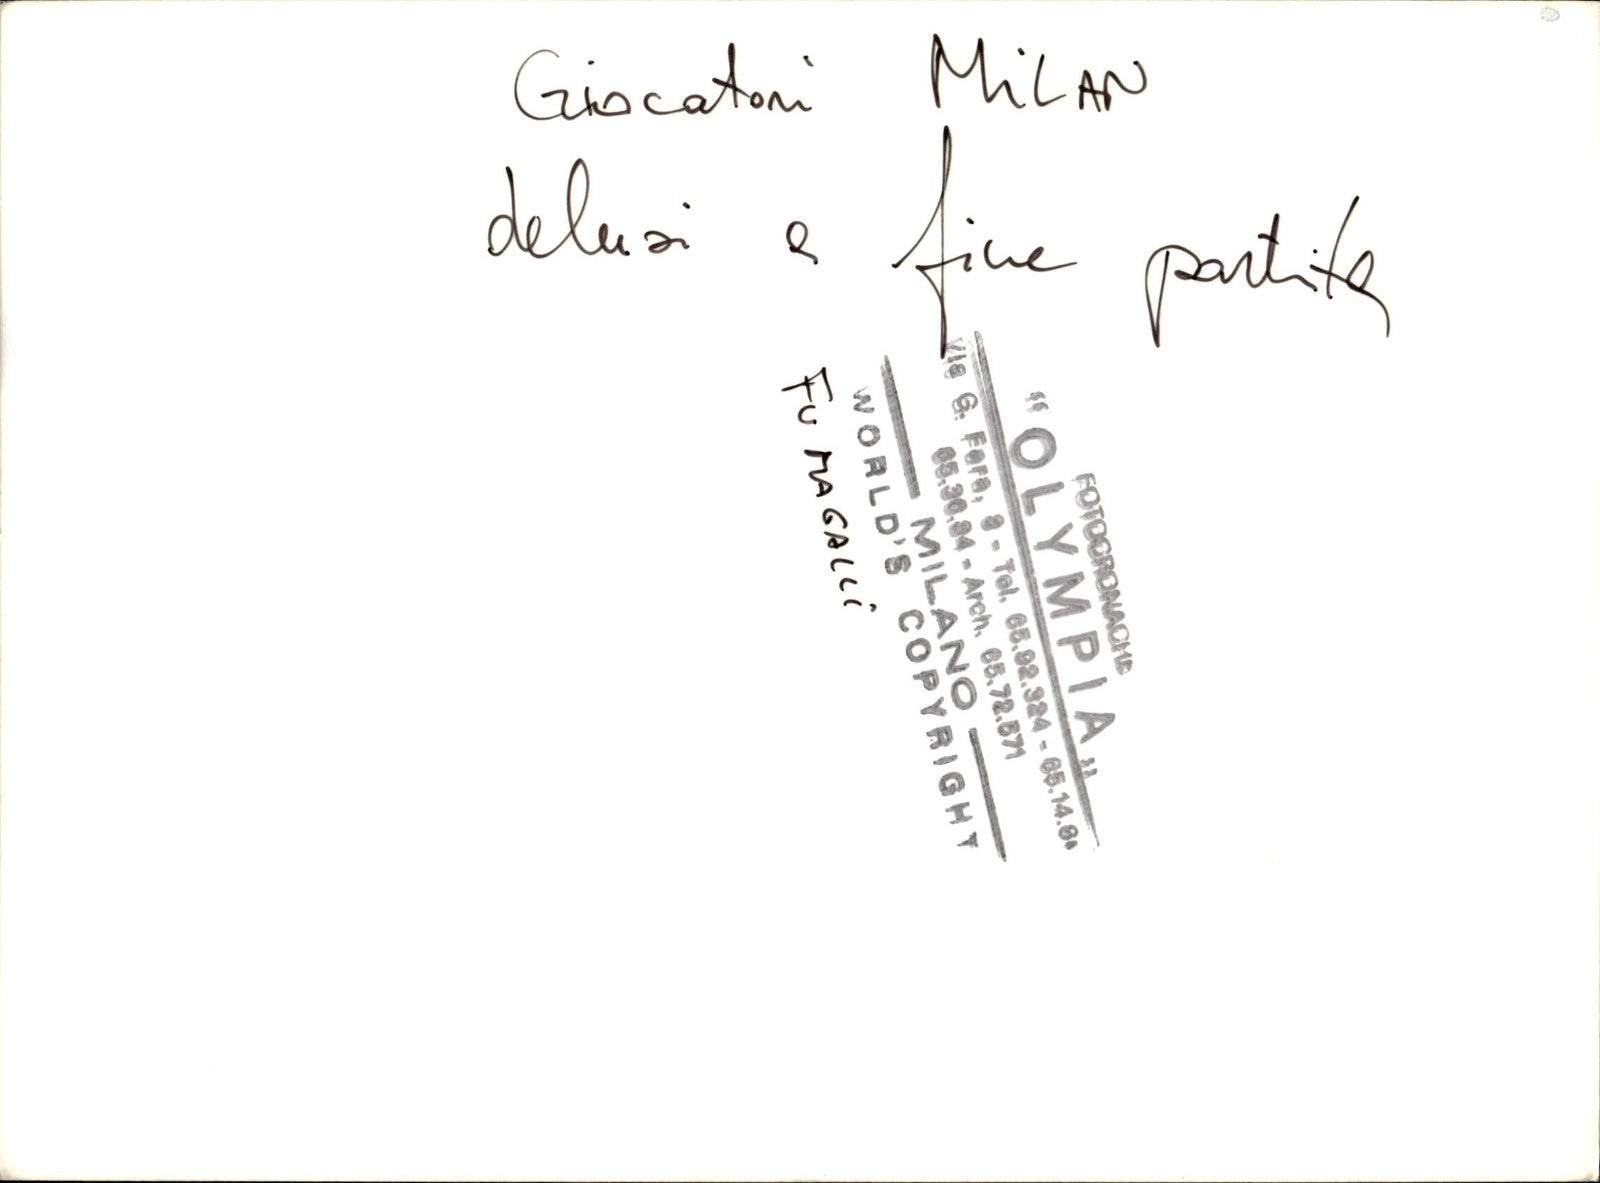 Giocatori MILAN
delusi a fine partita
FOTOCRONACHE
"OLYMPIA"
Via G. Fara, 8 - Tel. 65.92.324 - 65.14.
65.30.94 - Arch. 65.72.571
MILANO
WORLD'S COPYRIGHT
FUMAGALLI